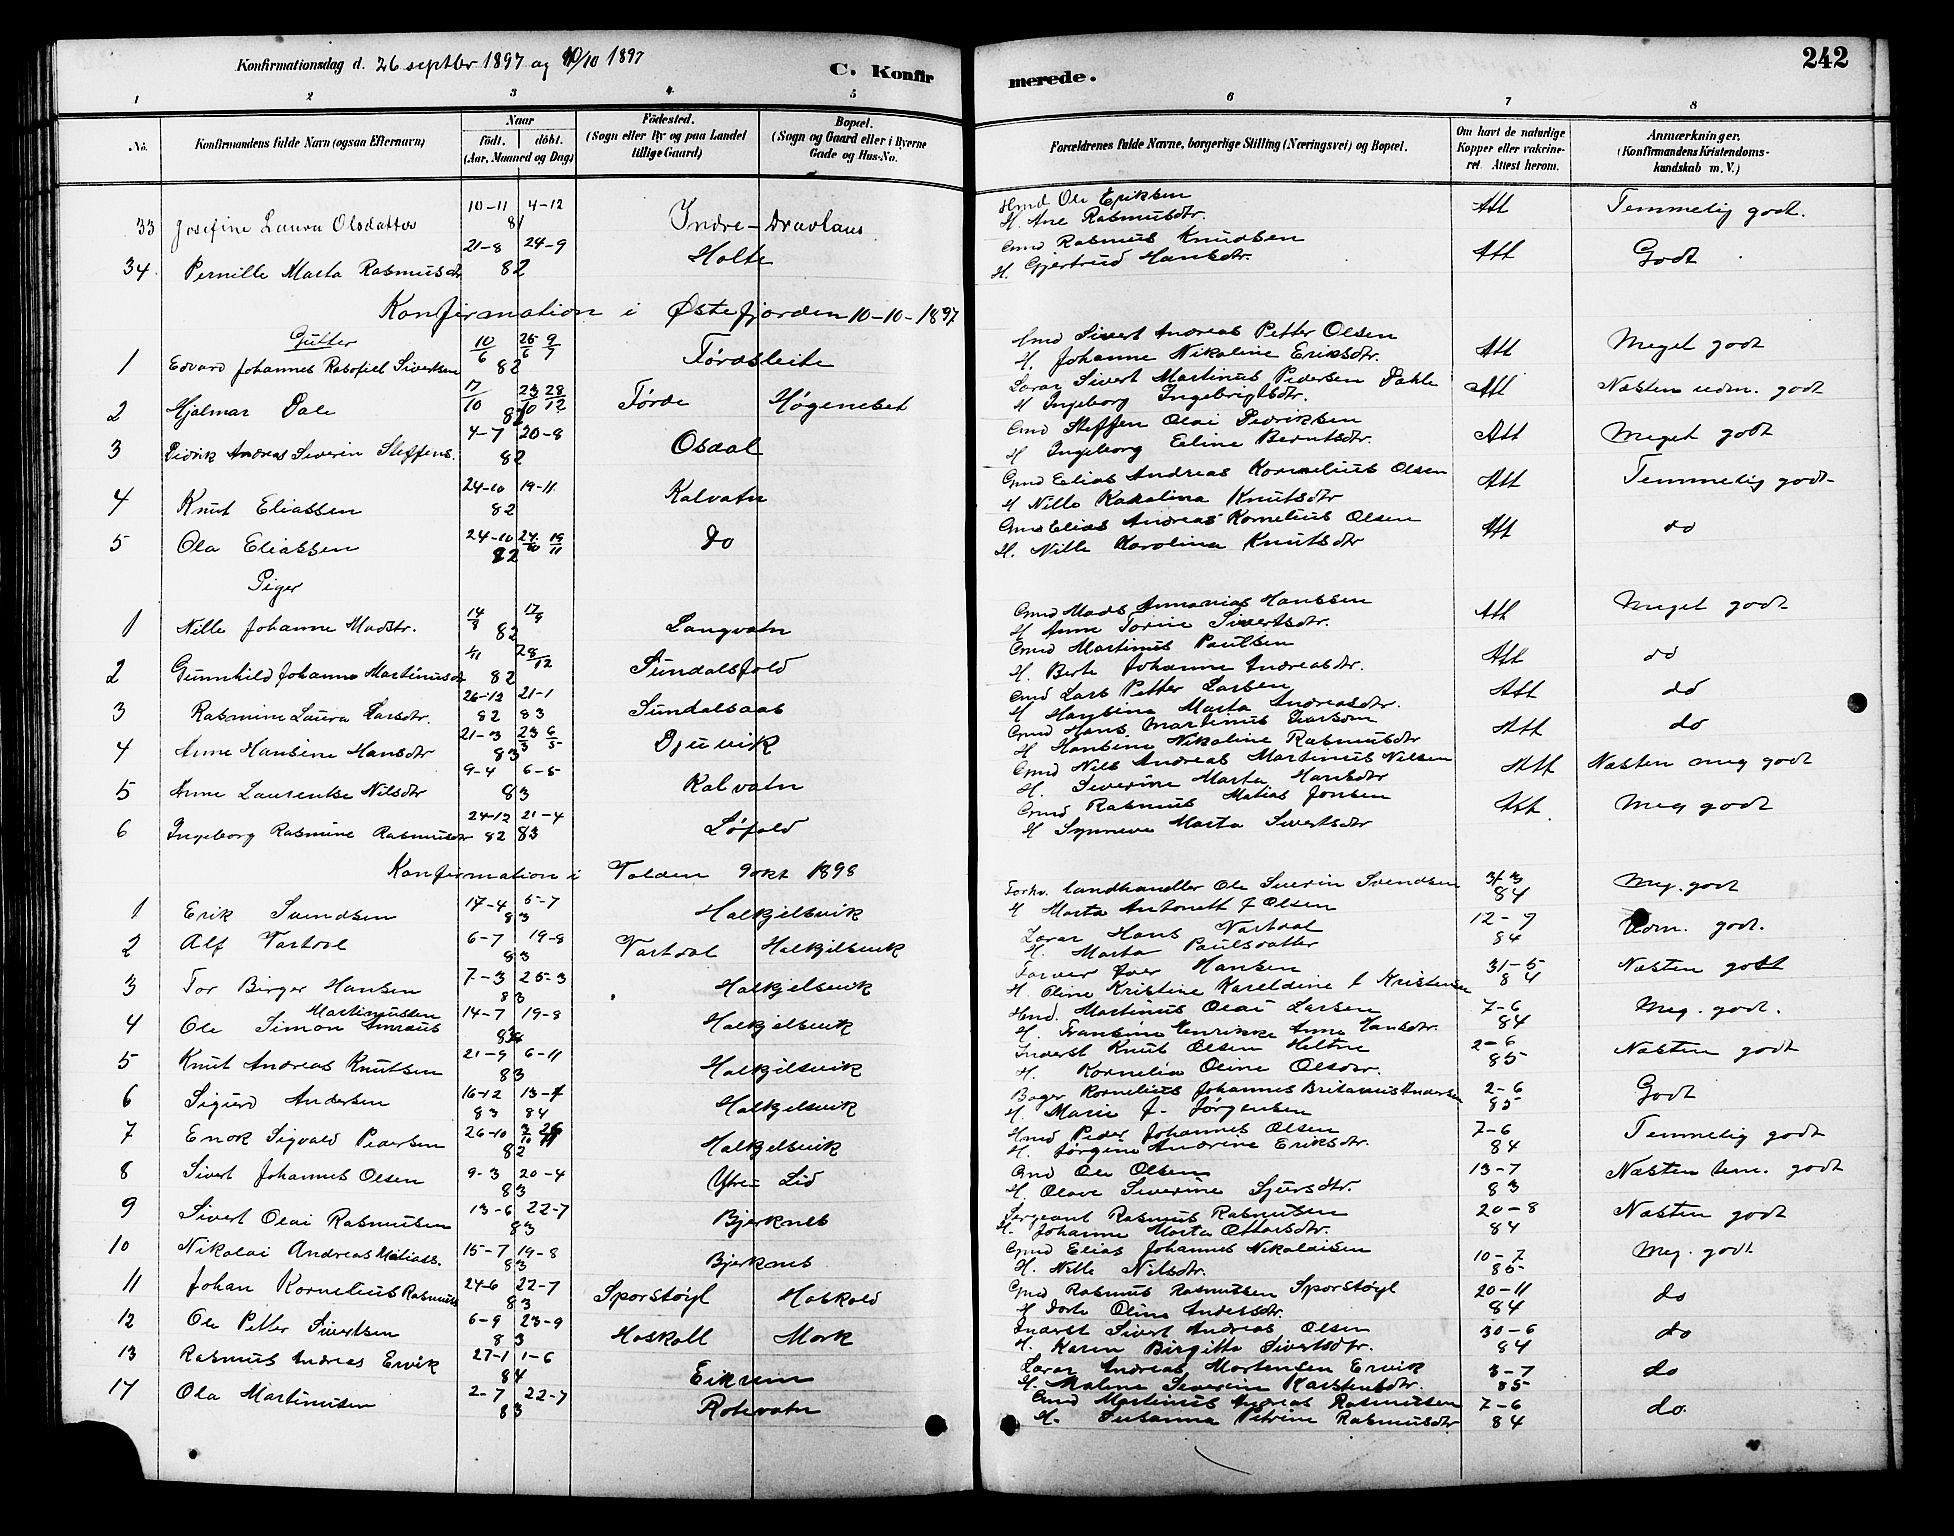 Konfirmationsdag d. 26 septbr 1897 og 10/10 1897
C. Konfirmerede.
242
1 2 3 4 5 6 7 8
No.
Konfirmandens fulde Navn (ogsaa Efternavn)
Naar
födt. döbt.
(Aar, Maaned og Dag)
Födested.
(Sogn eller By og paa Landet tillige Gaard)
Bopæl.
(Sogn og Gaard eller i Byerne Gade og Hus-No.
Forældrenes fulde Navne, borgerlige Stilling (Næringsvei) og Bopæl.
Om havt de naturlige Kopper eller vakcineret. Attest herom.
Anmærkninger.
(Konfirmandens Kristendomskundskab m. V.)
33 Josefine Laura Olsdatter 10-11 4-12 81 Indre-Dravlaus Hmd Ole Eriksen H. Ane Rasmusdtr. Att Temmelig godt.
34. Pernille Marta Rasmusdtr 21-8 24-9 82 Holte Gmd Rasmus Knudsen H. Gjertrud Hansdtr. Att Godt
Konfirmation i Østefjorden 10-10-1897
Gutter
1 Edvard Johannes Rasofiel Sivertsen 10/6 25/6 9/7 82 Førdsleite Gmd Sivert Andreas Petter Olsen H. Johanne Nikoline Eriksdtr. Att Meget godt
2 Hjalmar Dale 17/10 23/10 28/12 82 Førde Høgeneset Lærar Sivert Martinus Pedersen Dahle H Ingeborg Ingebrigtsdtr. Att Næsten udm. godt
3 Didrik Andreas Severin Steffens. 4-7 20-8 82 Osdal Gmd Steffen Olai Didriksen H Ingeborg Eline Berntsdtr. Att Meget godt
4 Knut Eliassen 24-10 19-11 82 Kalvatn Gmd Elias Andreas Kornelius Olsen H Nille Karolina Knutsdtr Att Temmelig godt
5 Ola Eliassen 24-10 24/10 19/11 82 do Gmd Elias Andreas Kornelius Olsen H. Nille Karolina Knutsdtr Att do
Piger
1 Nille Johanne Madstr. 14/8 17/9 82 Langvatn Gmd Mads Annanias Hanssen H Anne Torine Sivertsdtr. Att Meget godt
2 Gunnhild Johanne Martinusdtr 1/11 28/12 82 Sundalsfold Gmd Martinus Paulsen H. Berte Johanne Andreasdtr. Att do
3 Rasmine Laura Larsdtr. 26-12 21-1 82 83 Sundalsaas Gmd Lars Petter Larsen H Hansine Marta Andreasdtr. Att do
4 Anne Hansine Hansdtr 21-3 23/3 6/5 83 Djuvik Gmd Hans Martinus H Hansine Nikoline Rasmusdtr Att do
5 Anne Laurentse Nilsdtr 9-4 6-5 83 Kalvatn Gmd Nils Andreas Martinus Nilsen H. Severine Marta Hansdtr Att Næsten meg godt
6 Ingeborg Rasmine Rasmusdtr 24-12 21-4 82 83 Løfold Gmd Rasmus Matias Jonsen H Synneve Marta Sivertsdtr Att. Meg godt
Konfirmation i Volden 9 okt 1898
1 Erik Svendsen 17-4 5-7 83 Halkjelsvik Forhv. landhandler Ole Severin Svendsen H Marta Antonett f Olsen 31-3 84 Meg. godt
2 Alf Vartdal 6-7 19-8 83 Vartdal Halkjelsvik Lærar Hans Vartdal H. Marta Paulsdatter 12-9 84 Udm. godt.
3 Tor Birger Hansen 7-3 25-3 83 Halkjelsvik Farver Iver Hansen H. Oline Kristine Kareldine f Kristensen 31-5 84 Næsten godt
4 Ole Simon Martinussen 14-7 19-8 83 Halkjelsvik Hmd. Martinus Olai Larsen H. Fransine Henrikke Anne Hansdtr. 7-6 84 Meg. godt.
5 Knut Andreas Knutsen 21-9 6-11 83 Halkjelsvik Inderst Knut Olsen Heltne H. Kornelia Oline Olsdtr. 2-6 85 Næsten godt
6 Sigurd Andersen 16-12 13-4 83 84 Halkjelsvik Bager Kornelius Johannes Britanus Andersen H. Marie f- Jørgensen 2-6 85 Godt
7 Enok Sigvald Pedersen 26-10 82 Halkjelsvik Hmd Peder Johannes Olsen H. Jørgine Andrine Eriksdtr. 7-6 84 Temmelig godt
8 Sivert Johannes Olsen 9-3 20-4 83 Ytre-Lid Gmd Ole Olsen H. Olave Severine Sjursdtr. 13-7 83 Næsten tem. godt
9 Sivert Olai Rasmusen 13-6 22-7 83 Bjerknes Sergeant Rasmus Rasmusen H. Johanne Marta Ottarsdtr. 20-8 84 Næsten godt
10 Nikolai Andreas Eliass. 15-7 19-8 83 Bjerknes Gmd Elias Johannes Nikolaisen H. Nille Nilsdtr. 10-7 85 Meg. godt
11 Johan Kornelius Rasmuss 24-6 22-7 83 Sporstøyl Haskold Gmd Rasmus Rasmussen Sporstøyl H Dorte Oline Andersdtr. 20-11 84 do
12 Ole Petter Sivertsen 6-9 23-9 83 Haskoll Mork Inderst Sivert Andreas Olsen H. Karen Birgitta Sivertsdtr. 30-6 84 do
13 Rasmus Andreas Ervik 27-1 1-6 84 Eikrem Lærar Andreas Mortensen Ervik H. Malene Severine Karstensdtr. 3-7 85 do
14 Ola Martinusen 2-7 22-7 83 Rotevatn Gmd Martinus Andreas Rasmusen H. Susanna Petrine Rasmusdtr 7-6 84 do.